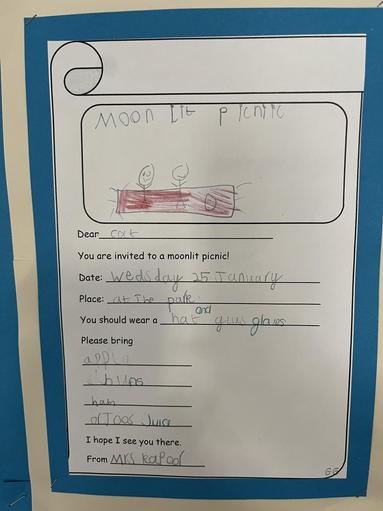 moon lit picnic
Dear cat
You are invited to a moonlit picnic!
Date: Wedsday 25 January
Place: at The park
and
You should wear a hat gluvs gloves
Please bring
apple
ham
I hope I see you there.
From Mrs kapoor
GG